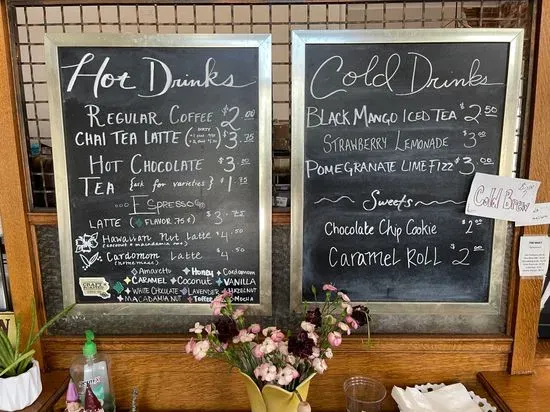 Hot Drinks
REGULAR COFFEE $2.00
CHAI TEA LATTE $3.75
DIRTY
HOT CHOCOLATE $3.00
TEA {ask for varieties} $1.75
ESPRESSO
LATTE (+ FLAVOR .75¢) $3.75
Hawaiian Nut Latte $4.50
(coconut & macadamia nut)
Cardomom Latte $4.50
(homemade)
Amaretto Honey Cardomom
CARAMEL Coconut VANILLA
WHITE CHOCOLATE LAVENDER HAZELNUT
MACADAMIA NUT TOFFEE MOCHA
CRAFT
ROASTED
Cold Drinks
BLACK MANGO ICED TEA $2.50
STRAWBERRY LEMONADE $3.00
POMEGRANATE LIME FIZZ $3.00
Sweets
Chocolate Chip Cookie $2.00
CARAMEL ROLL $2.00
Cold Brew